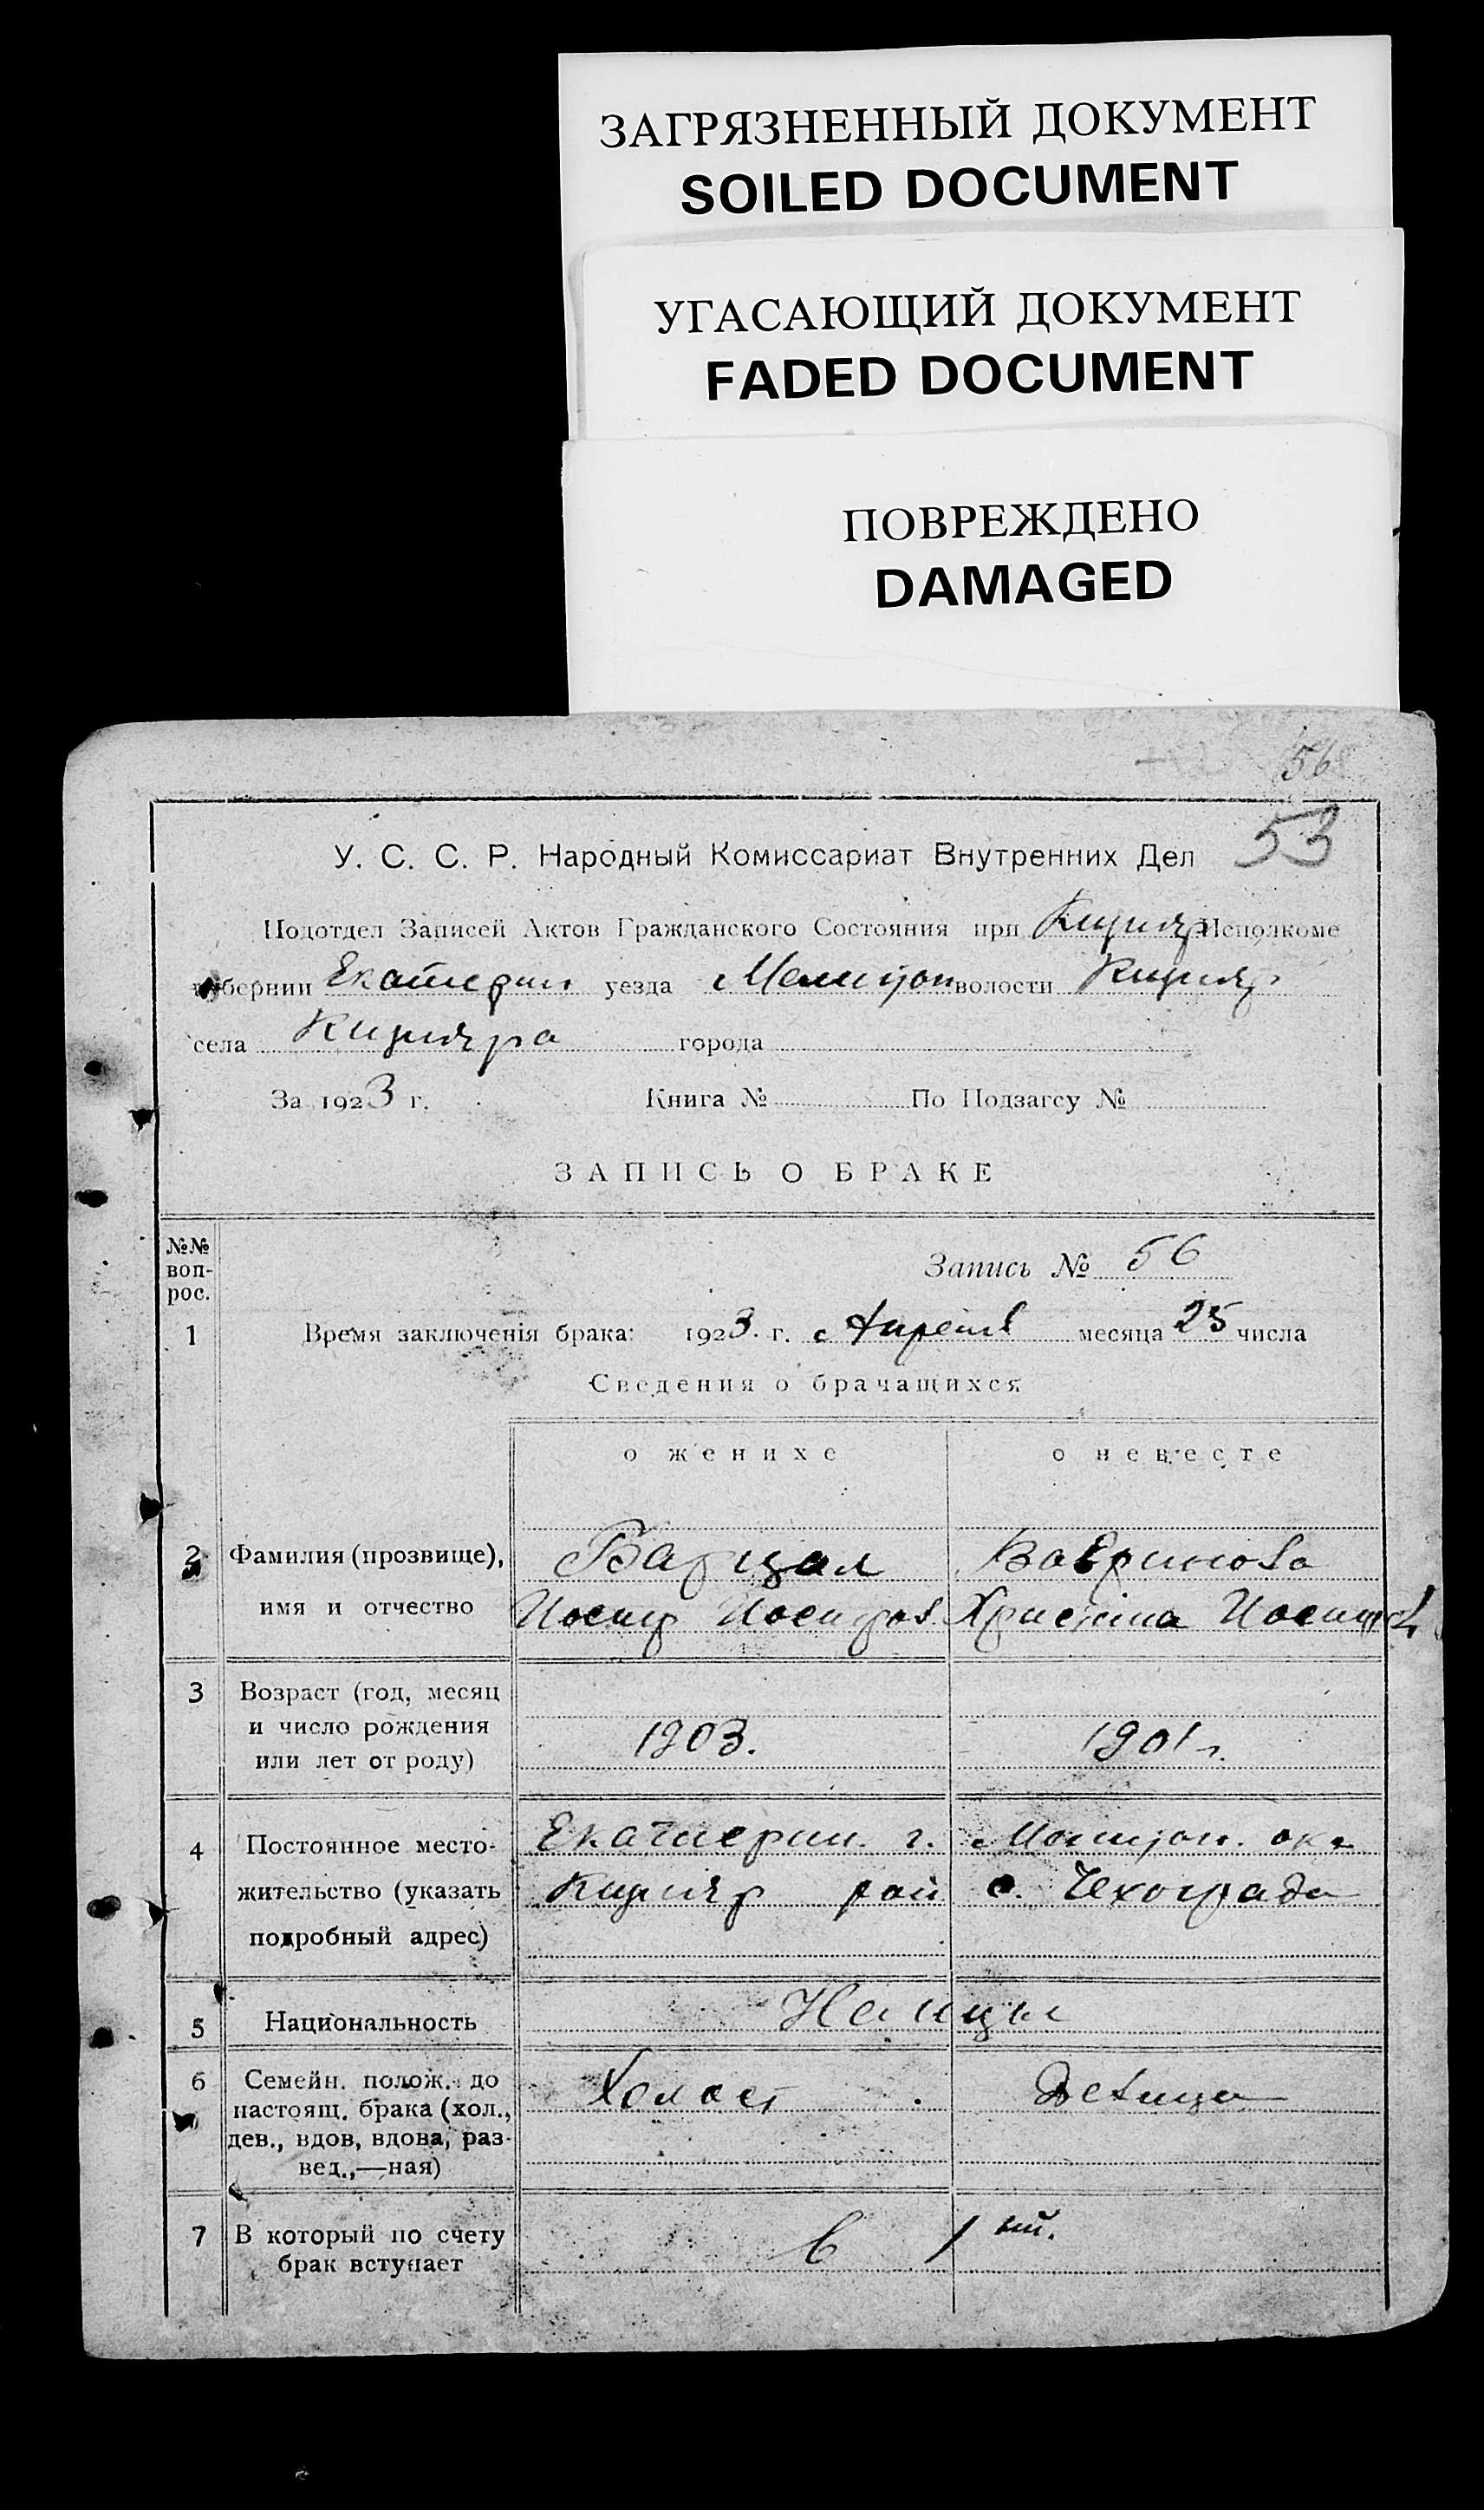 ЗАГРЯЗНЕННЫЙ ДОКУМЕНТ
SOILED DOCUMENT
УГАСАЮЩИЙ ДОКУМЕНТ
FADED DOCUMENT
ПОВРЕЖДЕНО
DAMAGED
56
53
У. С. С. Р. Народный Комиссариат Внутренних Дел
Подотдел Записей Актов Гражданского Состояния при Кизияр Исполкоме
губернии Екатерин уезда Мелитоп волости Кизияр
села Кизияра города
За 1923 г. Книга № По Подзагсу №
ЗАПИСЬ О БРАКЕ
№№ воп- рос.
Запись № 56
1 Время заключенія брака: 1923 г. Апреля месяца 25 числа
Сведения о брачащихся
о женихе о невесте
2 Фамилия (прозвище), Барцал
имя и отчество Иосиф Иосифов Христина Иосиф
3 Возраст (год, месяц
и число рождения 1903. 1901 г.
или лет от роду)
4 Постоянное место- Екатерин. г. Мелитоп. ок
жительство (указать Кизияр рай с. Чехограда
подробный адрес)
5 Национальность Немцы
6 Семейн. полож. до Холост Девица
настоящ. брака (хол.,
дев., вдов, вдова, раз-
вед.,—ная)
7 В который по счету в 1 ый.
брак вступает